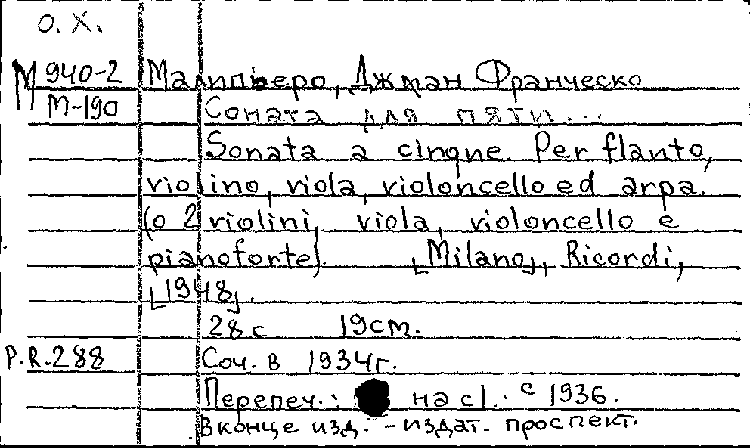 О. Х.
М 940-2 Малипьеро, Джман Франческо
М-190 Соната для пяти...
Sonata a cinque. Per flanto,
violino, viola, violoncello ed arpa.
(o 2 violini, viola, violoncello e
pianoforte). [Milano], Ricordi,
[1948].
28 с 19см.
P.R.288 Соч. в 1934г.
Перепеч.: на с1. с 1936.
В конце изд. - издат. проспект.